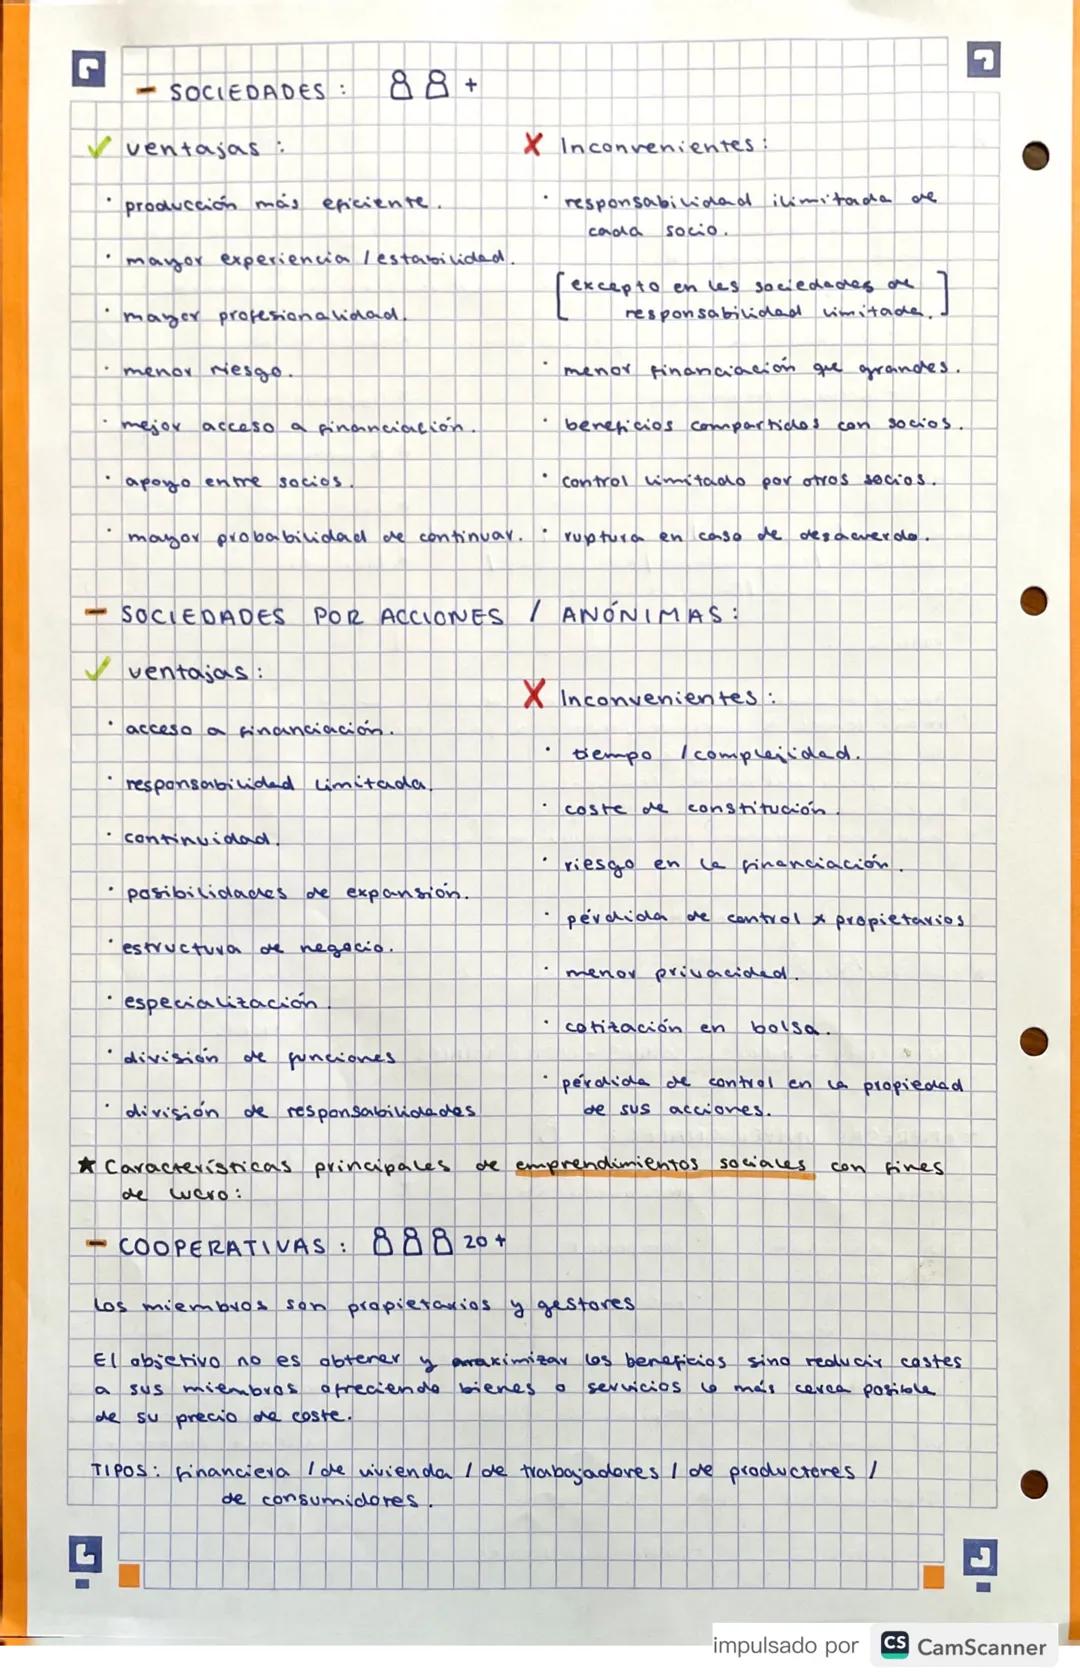 - SOCIEDADES: +
✓ ventajas:
· producción más eficiente.
· mayor experiencia / estabilidad.
· mayor profesionalidad.
· menor riesgo.
· mejor acceso a financiación.
· apoyo entre socios.
· mayor probabilidad de continuar.
X Inconvenientes:
· responsabilidad ilimitada de
cada socio.
[excepto en las sociedades de
responsabilidad limitada.]
· menor financiación que grandes.
· beneficios compartidos con socios.
· control limitado por otros socios.
· ruptura en caso de desacuerdo.
- SOCIEDADES POR ACCIONES / ANÓNIMAS:
✓ ventajas:
· acceso a financiación.
· responsabilidad limitada.
· continuidad.
· posibilidades de expansión.
· estructura de negocio.
· especialización.
· división de funciones
· división de responsabilidades
X Inconvenientes:
· tiempo / complejidad.
· coste de constitución.
· riesgo en la financiación.
· pérdida de control x propietarios
· menor privacidad.
· cotización en bolsa.
· pérdida de control en la propiedad
de sus acciones.
★ Características principales de emprendimientos sociales con fines
de lucro:
- COOPERATIVAS: 20+
Los miembros son propietarios y gestores
El objetivo no es obtener y maximizar los beneficios sino reducir costes
a sus miembros ofreciendo bienes o servicios lo más cerca posible
de su precio de coste.
TIPOS: financiera / de vivienda / de trabajadores / de productores /
de consumidores.
impulsado por CS CamScanner